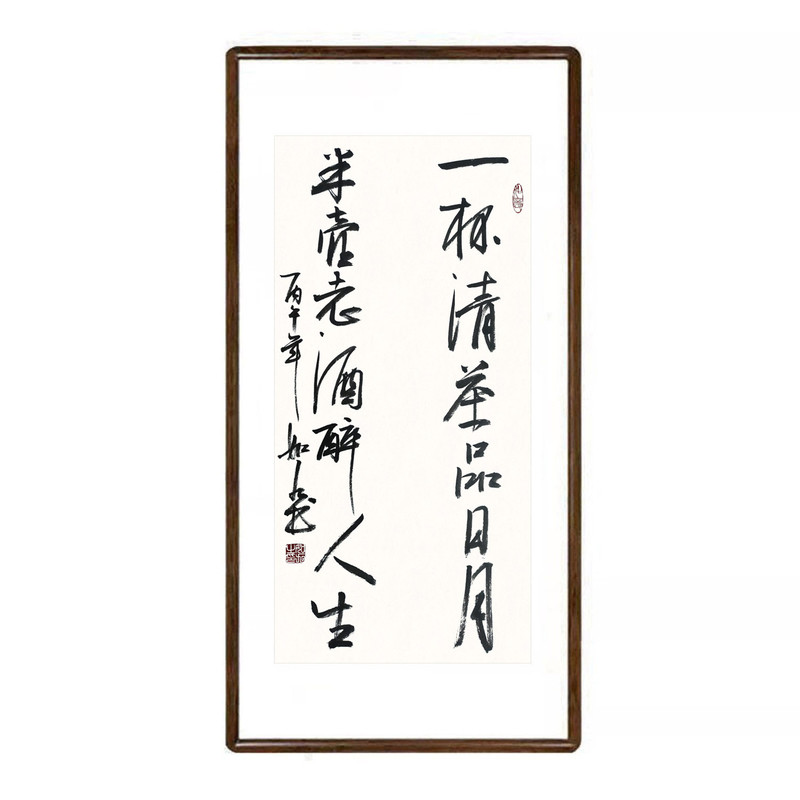 一杯清茶品日月
半壶老酒醉人生
丙午年 如